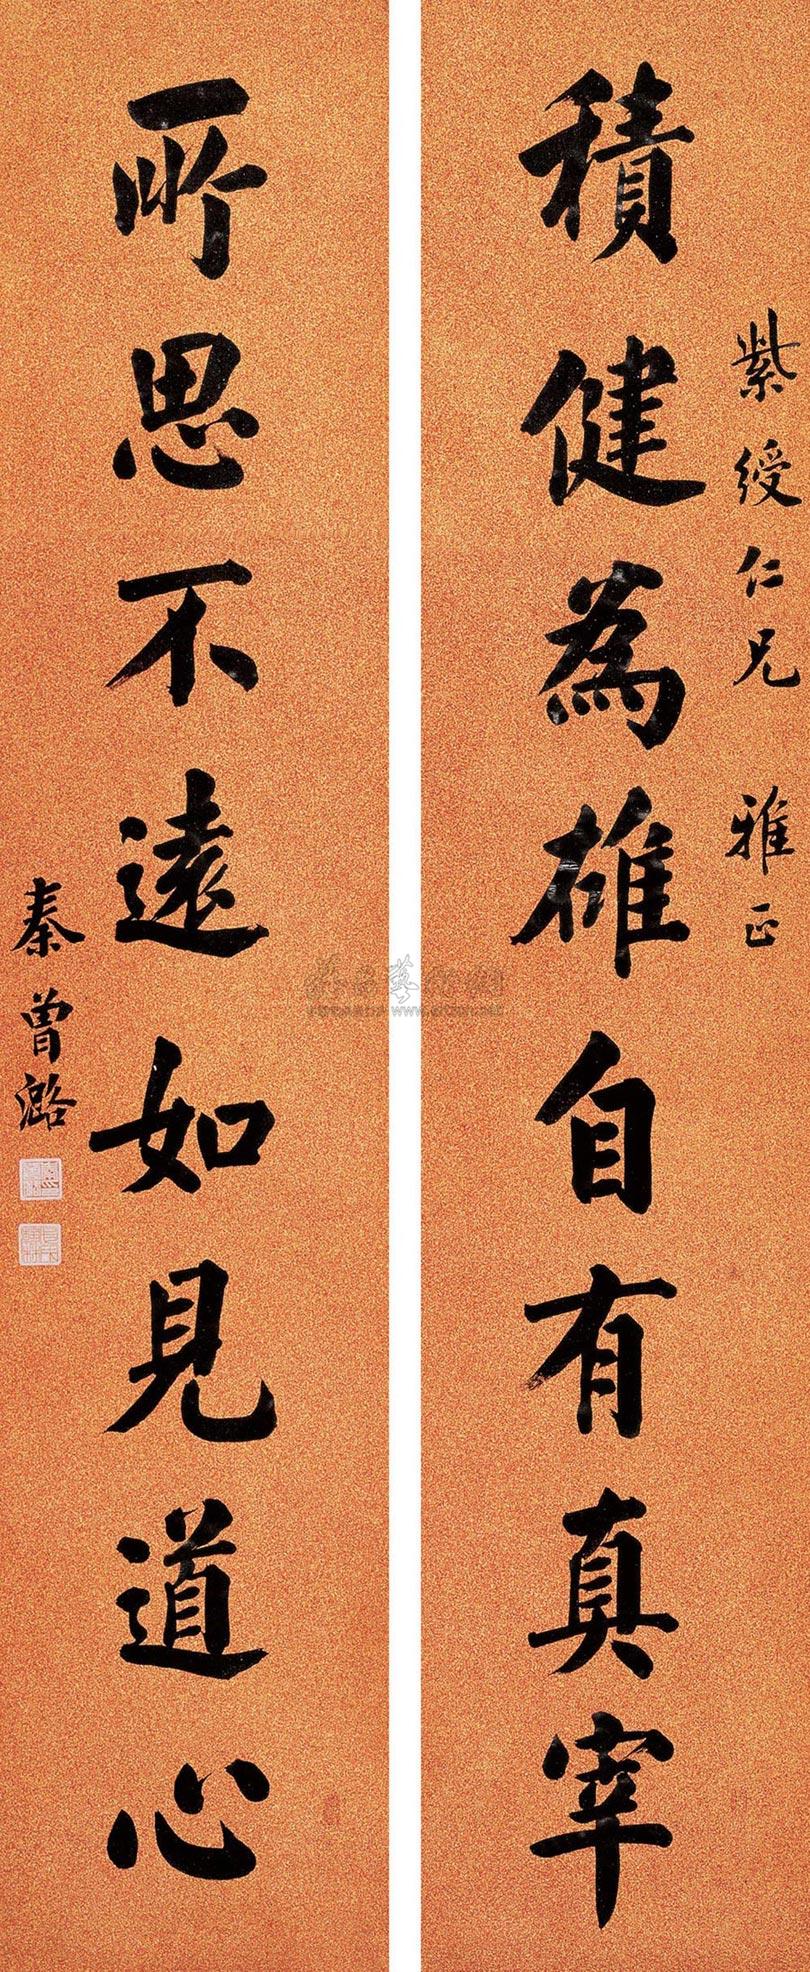 紫綬仁兄 雅正
積健為雄自有真宰
所思不遠如見道心
秦曾潞